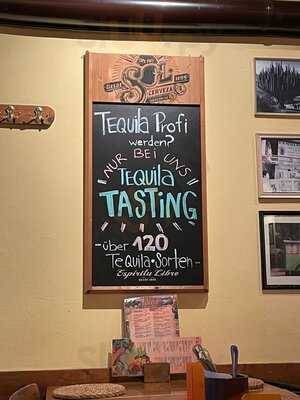 SOL
CERVEZA
TEQUILA PROFI
werden?
NUR BEI UNS
TEQUILA
TASTING
-über 120
Tequila•Sorten-
Espíritu Libre